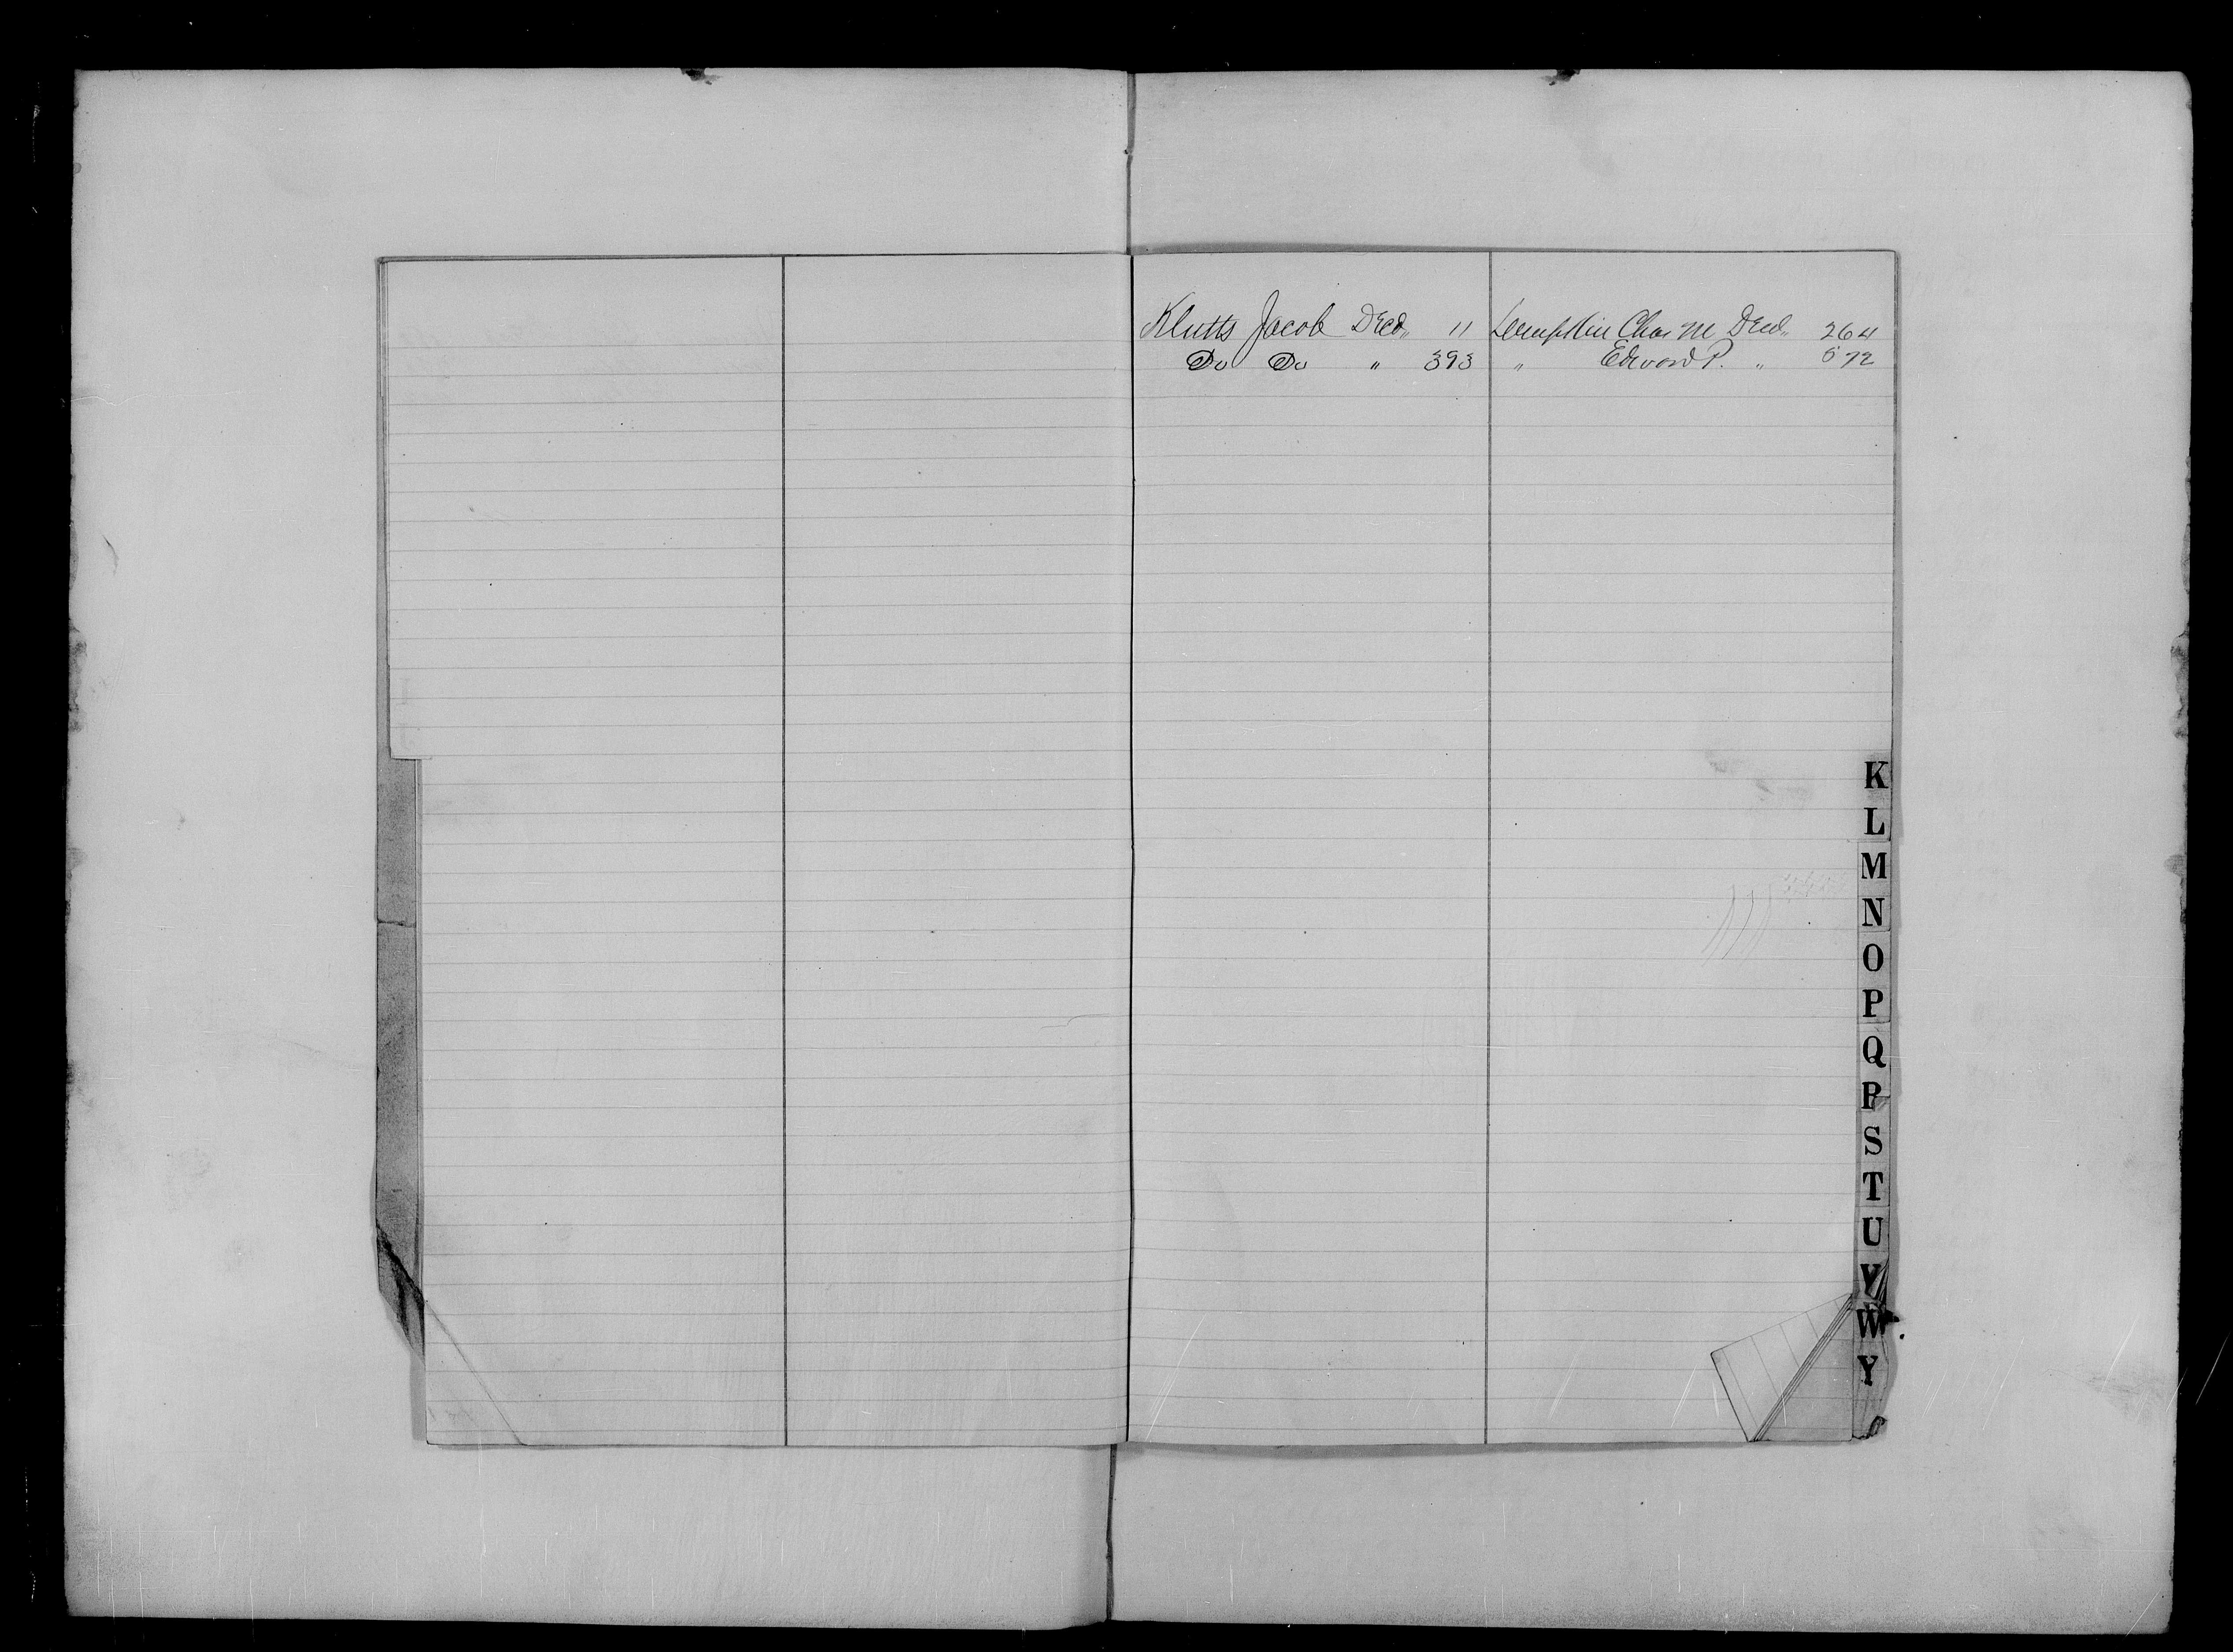 Klutts Jacob Decd,, 11
Do Do " 393
Lumpkin Chas M Decd,, 264
" Edward P. " 572
K
L
M
N
O
P
Q
R
S
T
U
V
W
Y